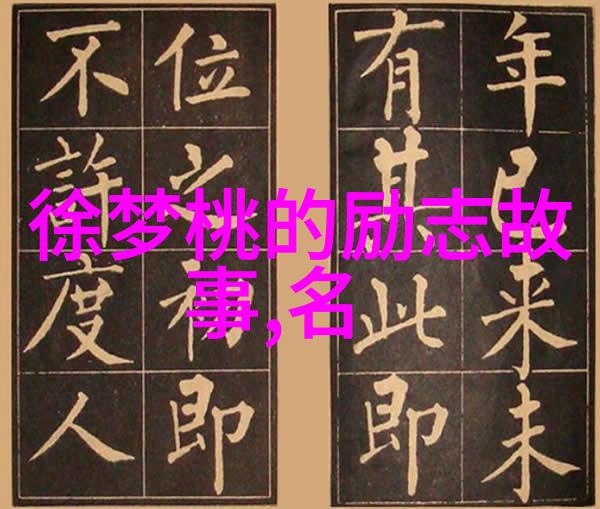 徐梦桃的励志故
事,名
年已来未
有其此即
位之初即
不許度人